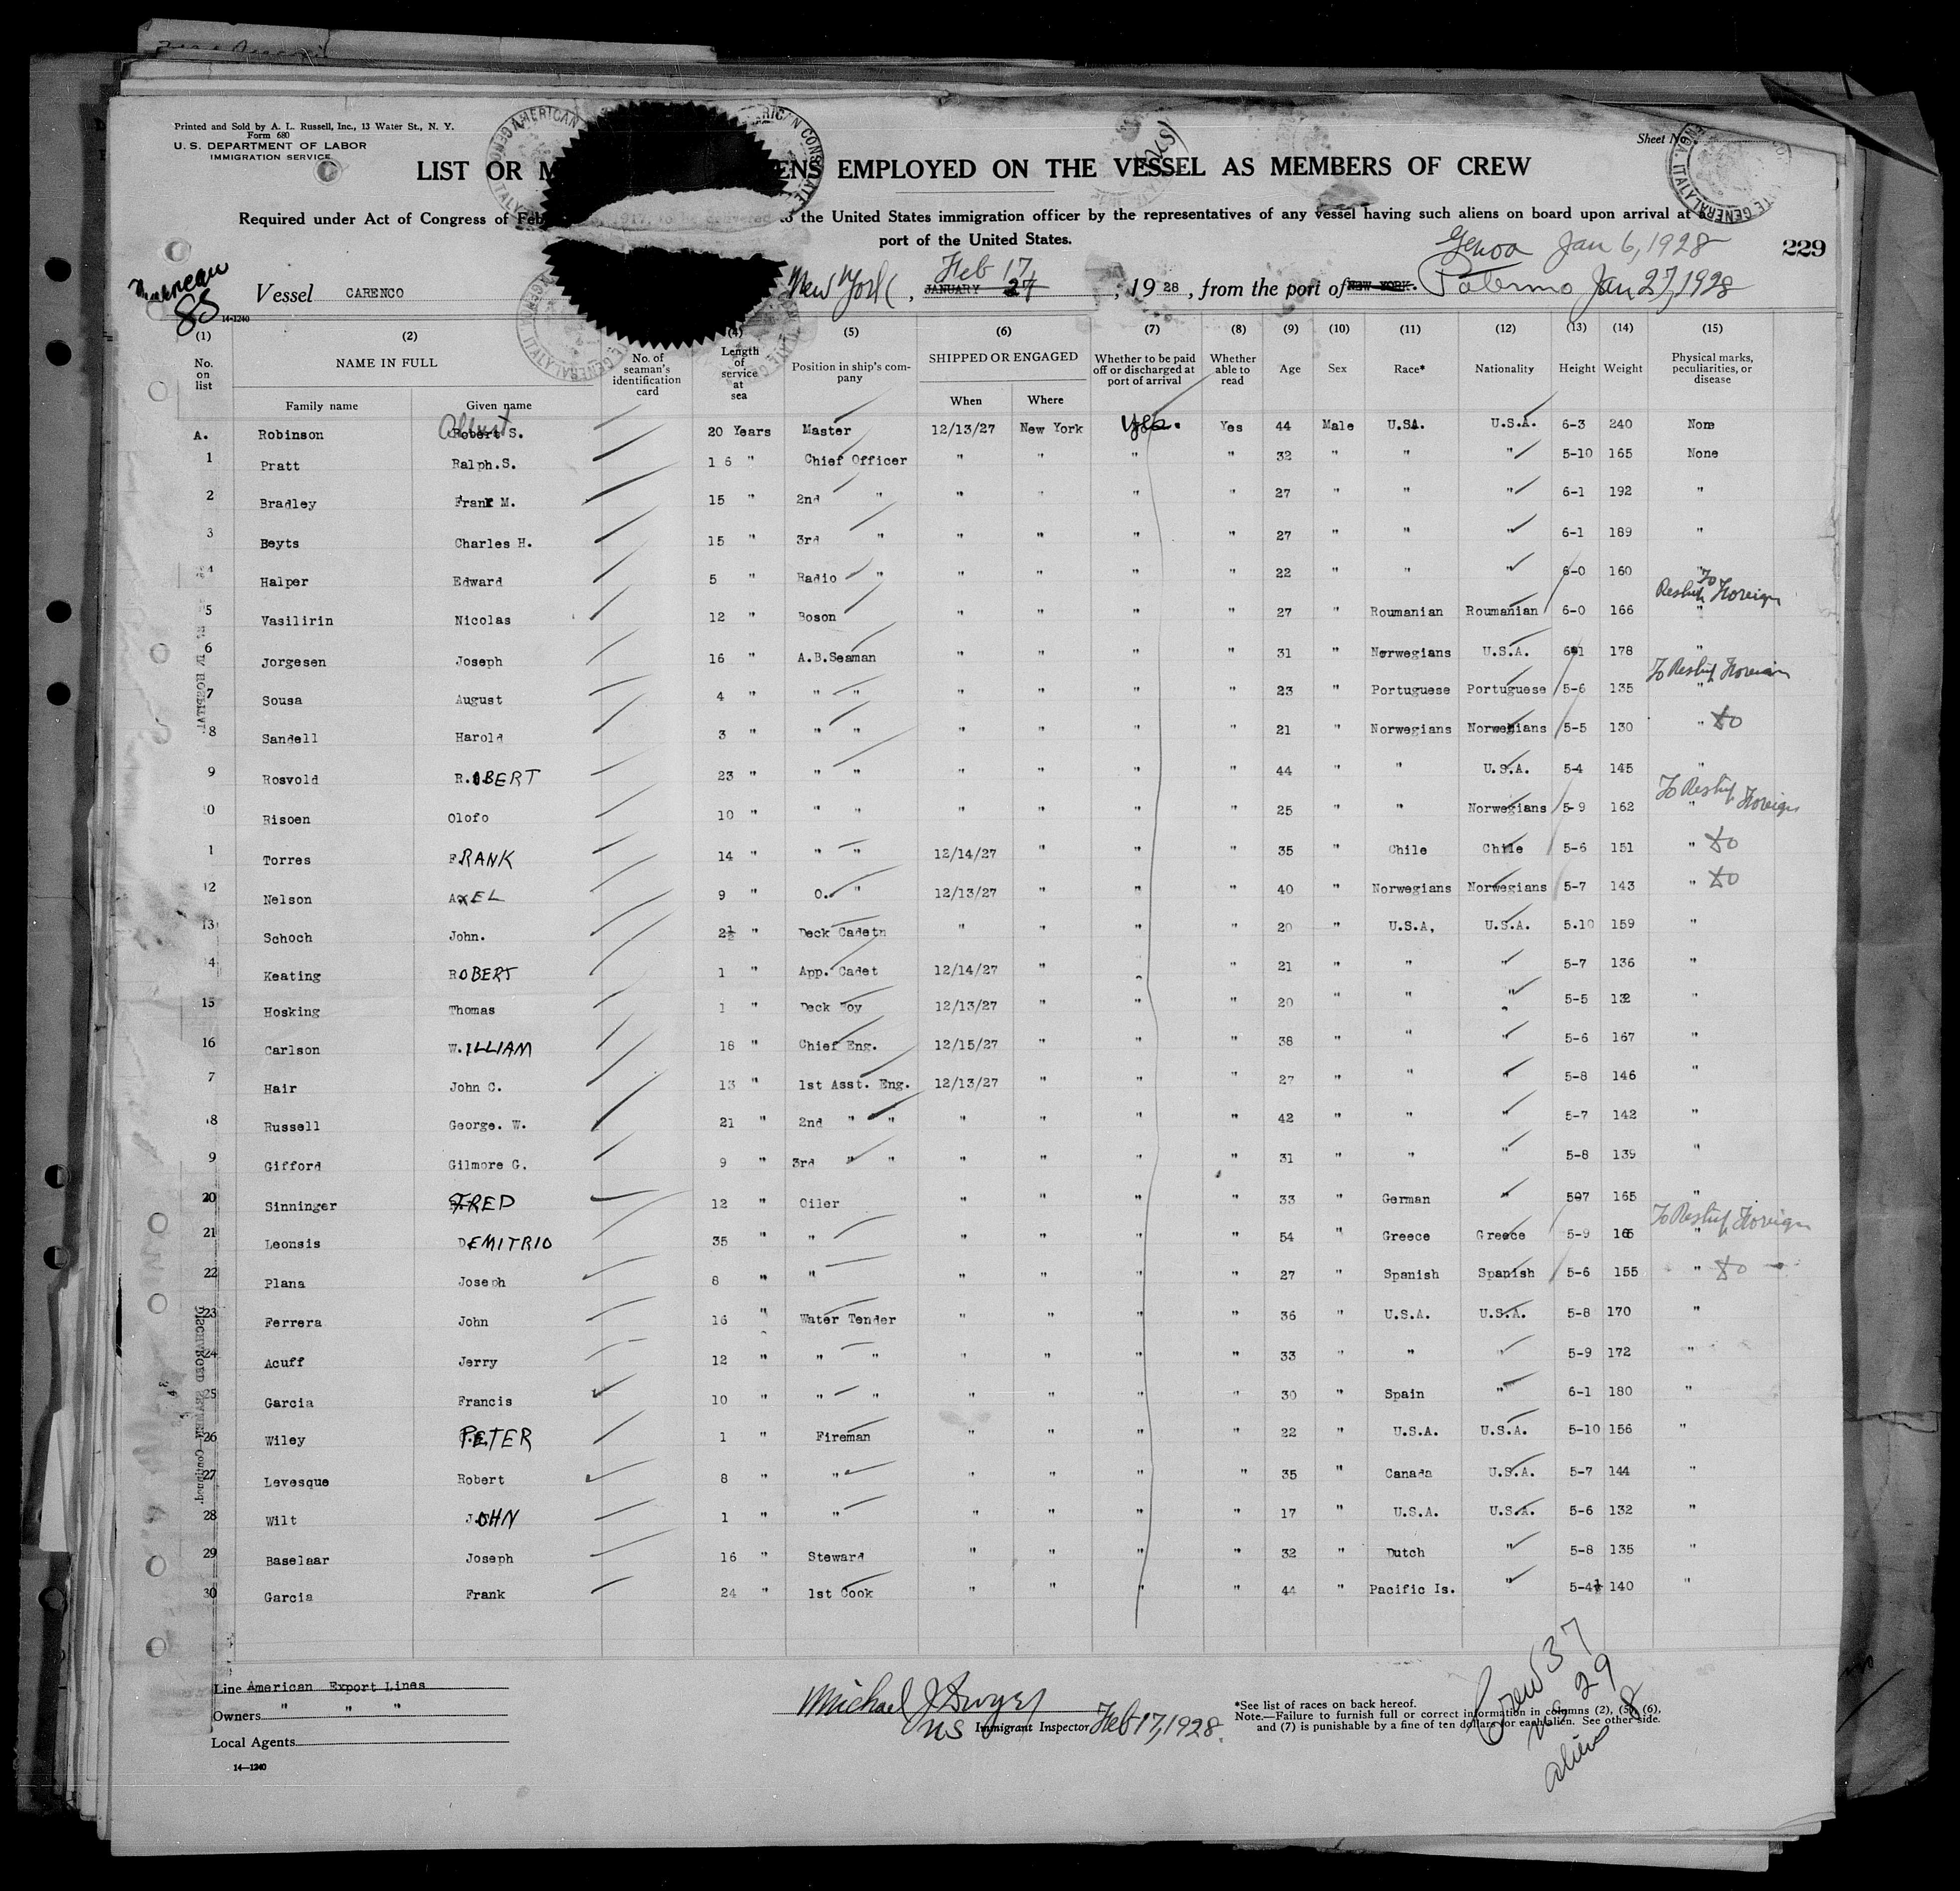 Printed and Sold by A. L. Russell, Inc., 13 Water St., N. Y.
Form 680
U. S. DEPARTMENT OF LABOR
IMMIGRATION SERVICE
Sheet No.
LIST OR M ENS EMPLOYED ON THE VESSEL AS MEMBERS OF CREW
Required under Act of Congress of Feb 1917, to be delivered to the United States immigration officer by the representatives of any vessel having such aliens on board upon arrival at a
port of the United States.
Genoa Jan 6, 1928
229
88
Vessel CARENCO New York, Feb 17 JANUARY 24, 1928, from the port of NEW YORK. Palermo Jan 27, 1928
14-1240
(1) (2) (4) (5) (6) (7) (8) (9) (10) (11) (12) (13) (14) (15)
No. on list NAME IN FULL No. of seaman's identification card Length of service at sea Position in ship's company SHIPPED OR ENGAGED Whether to be paid off or discharged at port of arrival Whether able to read Age Sex Race* Nationality Height Weight Physical marks, peculiarities, or disease
Family name Given name When Where
A. Robinson Albert Robert S. 20 Years Master 12/13/27 New York Yes. Yes 44 Male U.SA. U.S.A. 6-3 240 None
1 Pratt Ralph.S. 16 " Chief Officer " " " " 32 " " " 5-10 165 None
2 Bradley Frank M. 15 " 2nd " " " " " 27 " " " 6-1 192 "
3 Beyts Charles H. 15 " 3rd " " " " " 27 " " " 6-1 189 "
4 Halper Edward 5 " Radio " " " " " 22 " " " 6-0 160 "
5 Vasilirin Nicolas 12 " Boson " " " " 27 " Roumanian Roumanian 6-0 166 " To Reship Foreign
6 Jorgesen Joseph 16 " A.B.Seaman " " " " 31 " Norwegians U.S.A. 6-1 178 "
7 Sousa August 4 " " " " " " " 23 " Portuguese Portuguese 5-6 135 " To Reship Foreign
8 Sandell Harold 3 " " " " " " " 21 " Norwegians Norwegians 5-5 130 " do
9 Rosvold ROBERT 23 " " " " " " " 44 " " U.S.A. 5-4 145 "
10 Risoen Olofo 10 " " " " " " " 25 " " Norwegians 5-9 162 " To Reship Foreign
1 Torres FRANK 14 " " " 12/14/27 " " " 35 " Chile Chile 5-6 151 " do
12 Nelson AXEL 9 " O. " 12/13/27 " " " 40 " Norwegians Norwegians 5-7 143 " do
13 Schoch John. 2½ " Deck Cadetn " " " " 20 " U.S.A, U.S.A. 5.10 159 "
14 Keating ROBERT 1 " App. Cadet 12/14/27 " " " 21 " " " 5-7 136 "
15 Hosking Thomas 1 " Deck Boy 12/13/27 " " " 20 " " " 5-5 132 "
16 Carlson W.ILLIAM 18 " Chief Eng. 12/15/27 " " " 38 " " " 5-6 167 "
7 Hair John C. 13 " 1st Asst. Eng. 12/13/27 " " " 27 " " " 5-8 146 "
18 Russell George. W. 21 " 2nd " " " " " " 42 " " " 5-7 142 "
9 Gifford Gilmore G. 9 " 3rd " " " " " " 31 " " " 5-8 139 "
20 Sinninger FRED 12 " Oiler " " " " 33 " German " 5-7 165 "
21 Leonsis DEMITRIO 35 " " " " " " 54 " Greece Greece 5-9 165 " To Reship Foreign
22 Plana Joseph 8 " " " " " " 27 " Spanish Spanish 5-6 155 " do
23 Ferrera John 16 " Water Tender " " " " 36 " U.S.A. U.S.A. 5-8 170 "
24 Acuff Jerry 12 " " " " " " " 33 " " " 5-9 172 "
25 Garcia Francis 10 " " " " " " " 30 " Spain " 6-1 180 "
26 Wiley PETER 1 " Fireman " " " " 22 " U.S.A. U.S.A. 5-10 156 "
27 Levesque Robert 8 " " " " " " 35 " Canada U.S.A. 5-7 144 "
28 Wilt JOHN 1 " " " " " " 17 " U.S.A. U.S.A. 5-6 132 "
29 Baselaar Joseph 16 " Steward " " " " 32 " Dutch " 5-8 135 "
30 Garcia Frank 24 " 1st Cook " " " " 44 " Pacific Is. " 5-4½ 140 "
Line American Export Lines
Owners " " "
Local Agents
14—1240
Michael J Dwyer
US Immigrant Inspector Feb 17, 1928.
*See list of races on back hereof.
Note.—Failure to furnish full or correct information in columns (2), (5), (6),
and (7) is punishable by a fine of ten dollars for each alien. See other side.
Crew 37
US 29
aliens 8